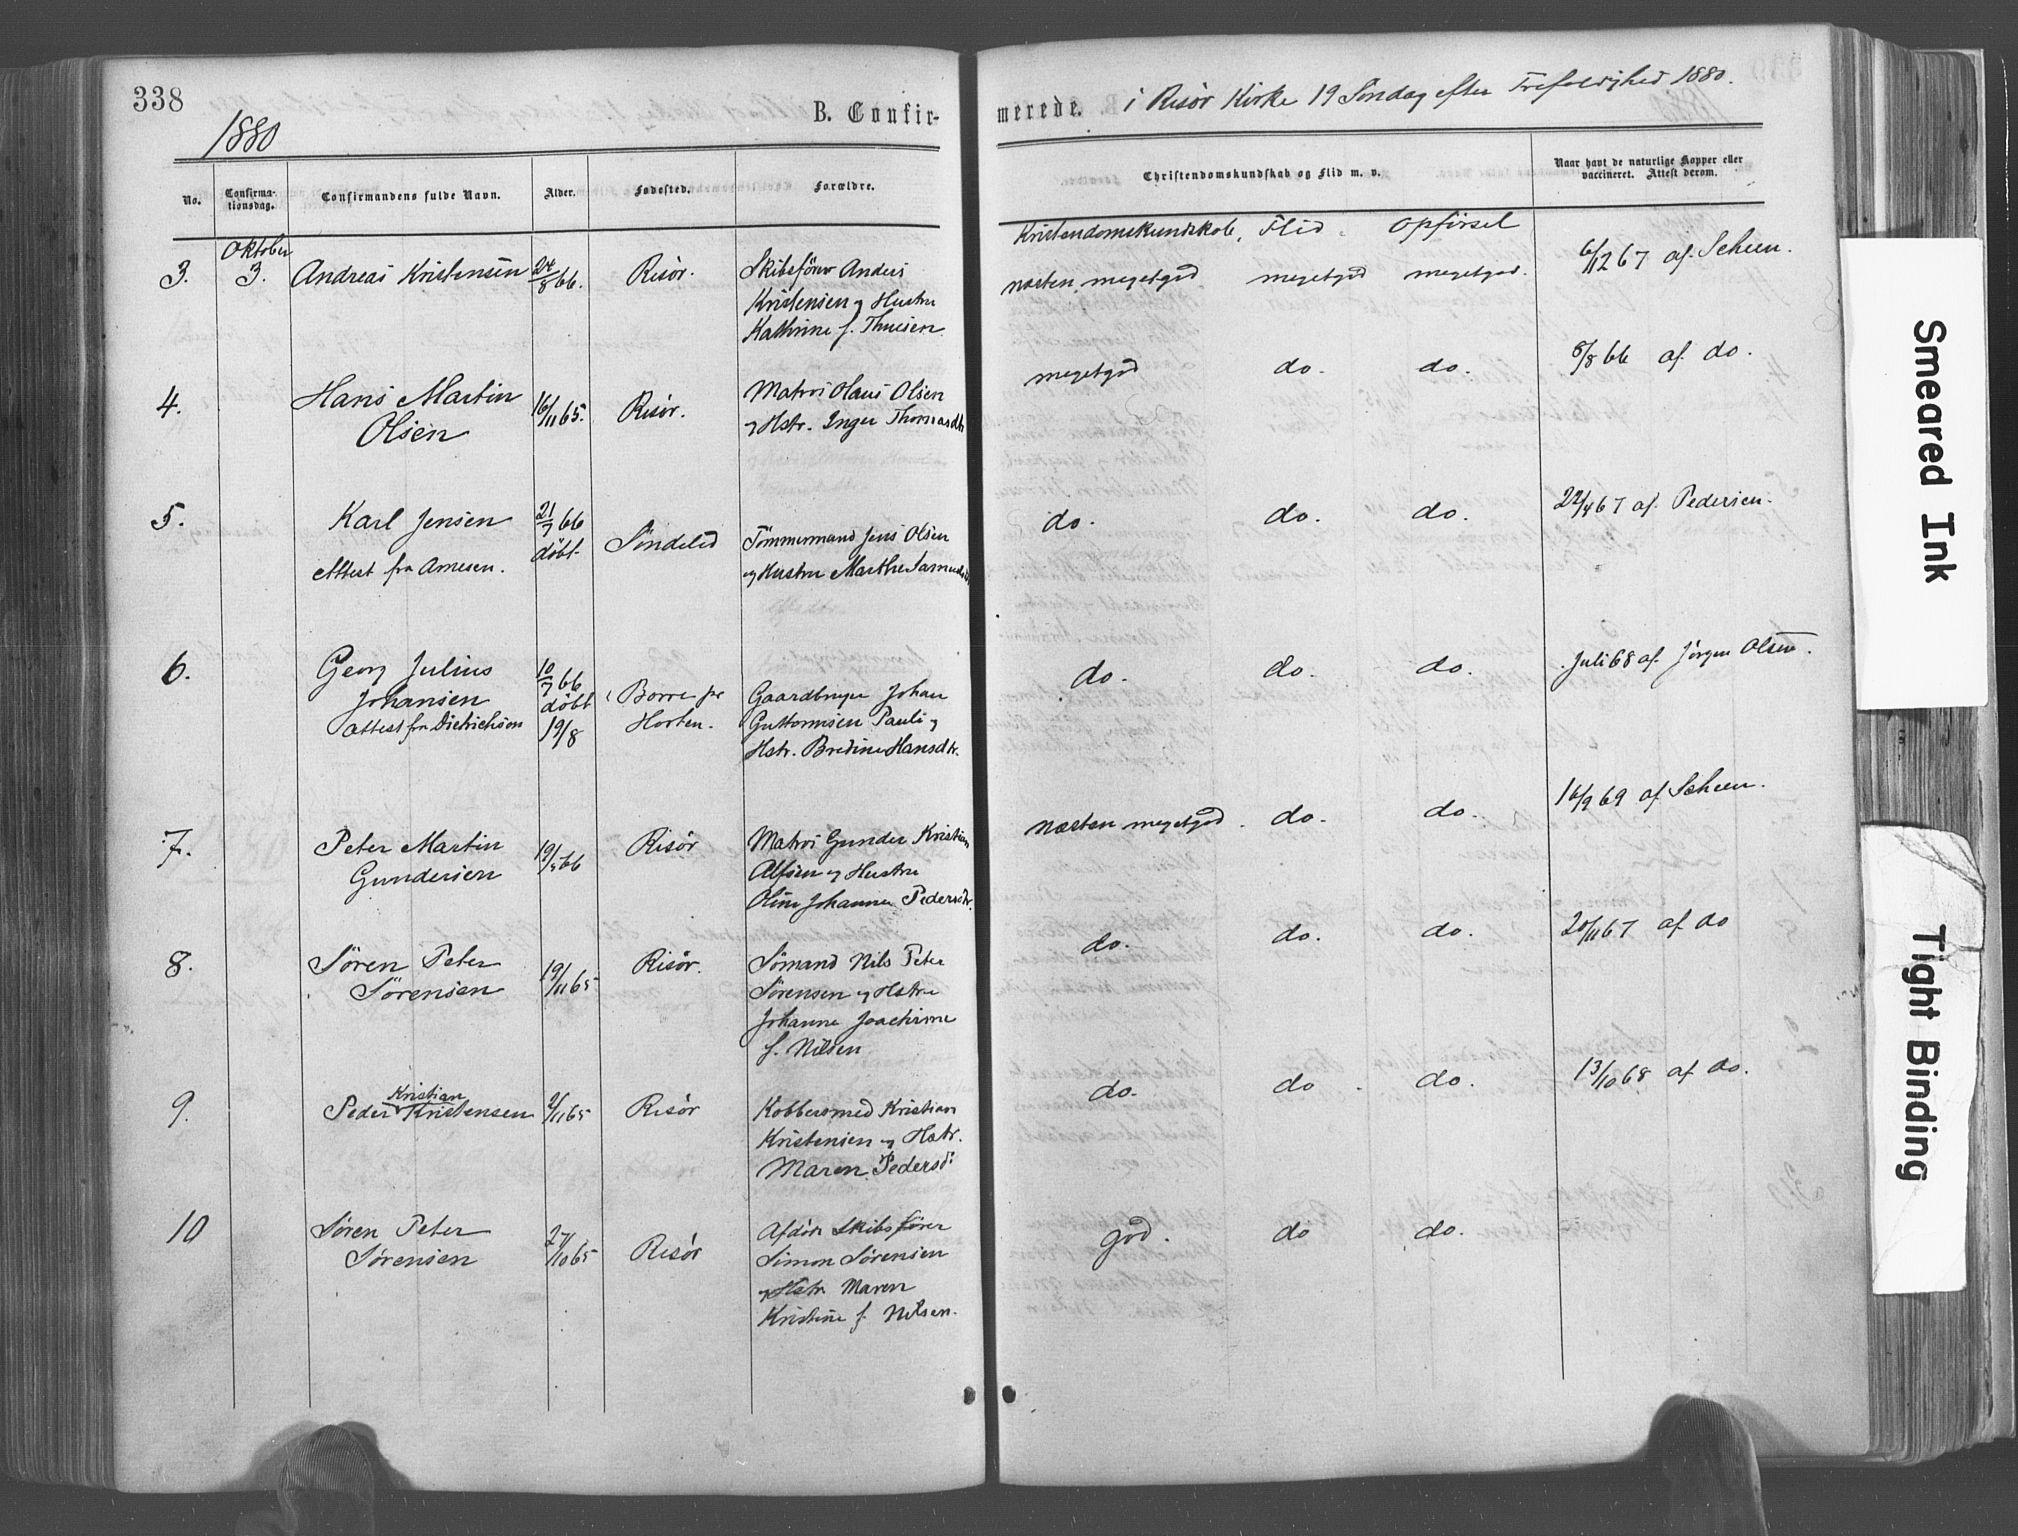 338
1880
B. Confirmerede.
i Risør Kirke 19 Søndag efter Trefoldighed 1880.
No.
Confirmationsdag.
Confirmandens fulde Navn.
Alder.
Fødested.
Forældre.
Christendomskundskab og Flid m. v.
Naar havt de naturlige Kopper eller
vaccineret. Attest derom.
Kristendomskundskab, Flid. Opførsel
Oktober
3. 3. Andreas Kristensen 24/8 66. Risør. Skibsfører Anders
Kristensen og Hustru
Kathrine f. Thuesen
næsten megetgod megetgod megetgod. 6/12 67 af Scheen.
4. Hans Martin
Olsen
16/11 65. Risør. Matros Hans Olsen
og Hstr. Inger Thomasdtr
megetgod do. do. 8/8 66 af do.
5. Karl Jensen
Attest fra Arnesen.
21/7 66
døbt
Søndeled Tømmermand Jens Olsen
og Hustru Marthe Samuelsd
do. do. do. 22/4 67 af Pedersen.
6. Georg Julius
Johansen
Attest fra Dietrichson
10/7 66
døbt
19/8
Borre pr
Horten.
Gaardbruger Johan
Guttormsen Pauli og
Hstr. Bredine Hansdtr.
do. do. do. Juli 68 af Jørgen Olsen.
7. Peter Martin
Gundersen
19/5 66 Risør Matros Gunder Kristian
Alfsen og Hustru
Oline Johanne Pedersdtr.
næsten megetgod. do. do. 16/9 69 af Scheen.
8. Søren Peter
Sørensen
19/11 65 Risør. Sømand Nils Peter
Sørensen og Hstru
Johanne Joachime
f. Nilsen
do. do. do. 20/11 67 af do
9. Peder Kristian Kristensen /11 65 Risør Kobbersmed Kristian
Kristensen og Hstr.
Maren Pedersd:
do. do. do. 13/10 68 af do.
10 Søren Peter
Sørensen
27/10 65 Risør Afdøde Skibsfører
Simon Sørensen
og Hstr Maren
Kristine f. Nilsen.
god. do do.
Smeared Ink
Tight Binding